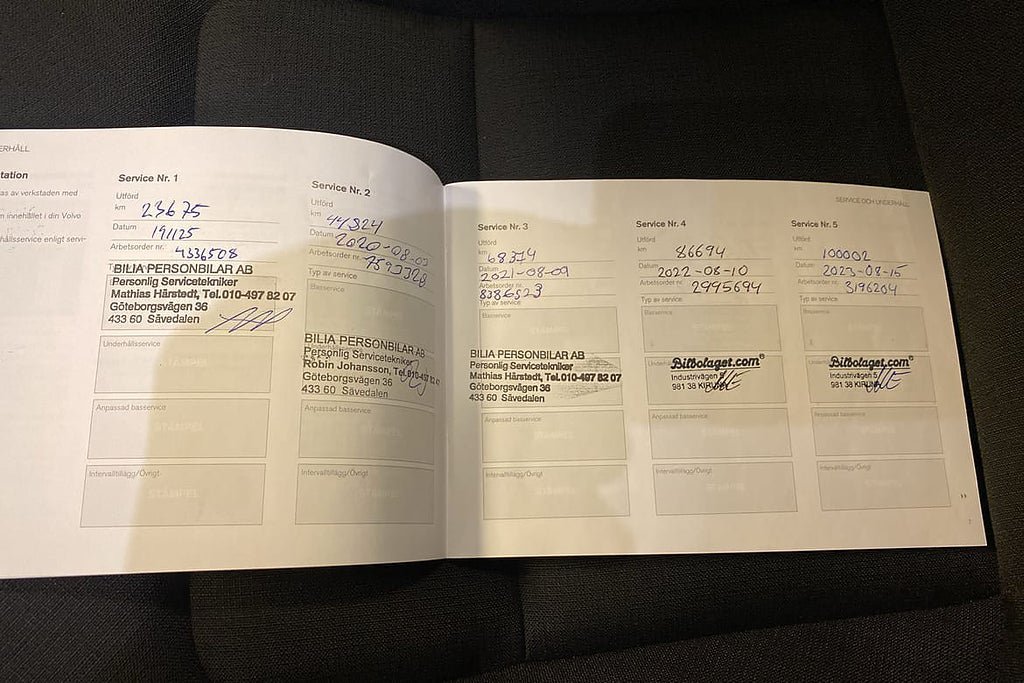 ERHÅLL
tation
as av verkstaden med
innehållet i din Volvo
hållsservice enligt servi-
Service Nr. 1
Utförd
km 23675
Datum 191125
Arbetsorder nr. 4336508
BILIA PERSONBILAR AB
Personlig Servicetekniker
Mathias Härstedt, Tel.010-497 82 07
Göteborgsvägen 36
433 60 Sävedalen
Underhållsservice
STÄMPEL
Anpassad basservice
STÄMPEL
Intervalltillägg/Övrigt
STÄMPEL
Service Nr. 2
Utförd
km 44824
Datum 2020-08-
Arbetsorder nr.
Typ av service
Basservice
STÄMPEL
BILIA PERSONBILAR AB
Personlig Servicetekniker
Robin Johansson, Tel.010-497 82
Göteborgsvägen 36
433 60 Sävedalen
Anpassad basservice
STÄMPEL
Intervalltillägg/Övrigt
STÄMPEL
Service Nr. 3
Utförd
km 68374
Datum 2021-08-09
Arbetsorder nr. 8086523
Typ av service
Basservice
STÄMPEL
BILIA PERSONBILAR AB
Personlig Servicetekniker
Mathias Härstedt, Tel.010-497 82 07
Göteborgsvägen 36
433 60 Sävedalen
Anpassad basservice
STÄMPEL
Intervalltillägg/Övrigt
STÄMPEL
SERVICE OCH UNDERHÅLL
Service Nr. 4
Utförd
km 86694
Datum 2022-08-10
Arbetsorder nr. 2995694
Typ av service
Basservice
STÄMPEL
Bilbolaget.com®
Industrivägen 5
981 38 KIRUNA
Anpassad basservice
STÄMPEL
Intervalltillägg/Övrigt
STÄMPEL
Service Nr. 5
Utförd
km 100002
Datum 2023-08-15
Arbetsorder nr. 3196204
Typ av service
Basservice
STÄMPEL
Bilbolaget.com®
Industrivägen 5
981 38 KIRUNA
Anpassad basservice
STÄMPEL
Intervalltillägg/Övrigt
STÄMPEL
››
7